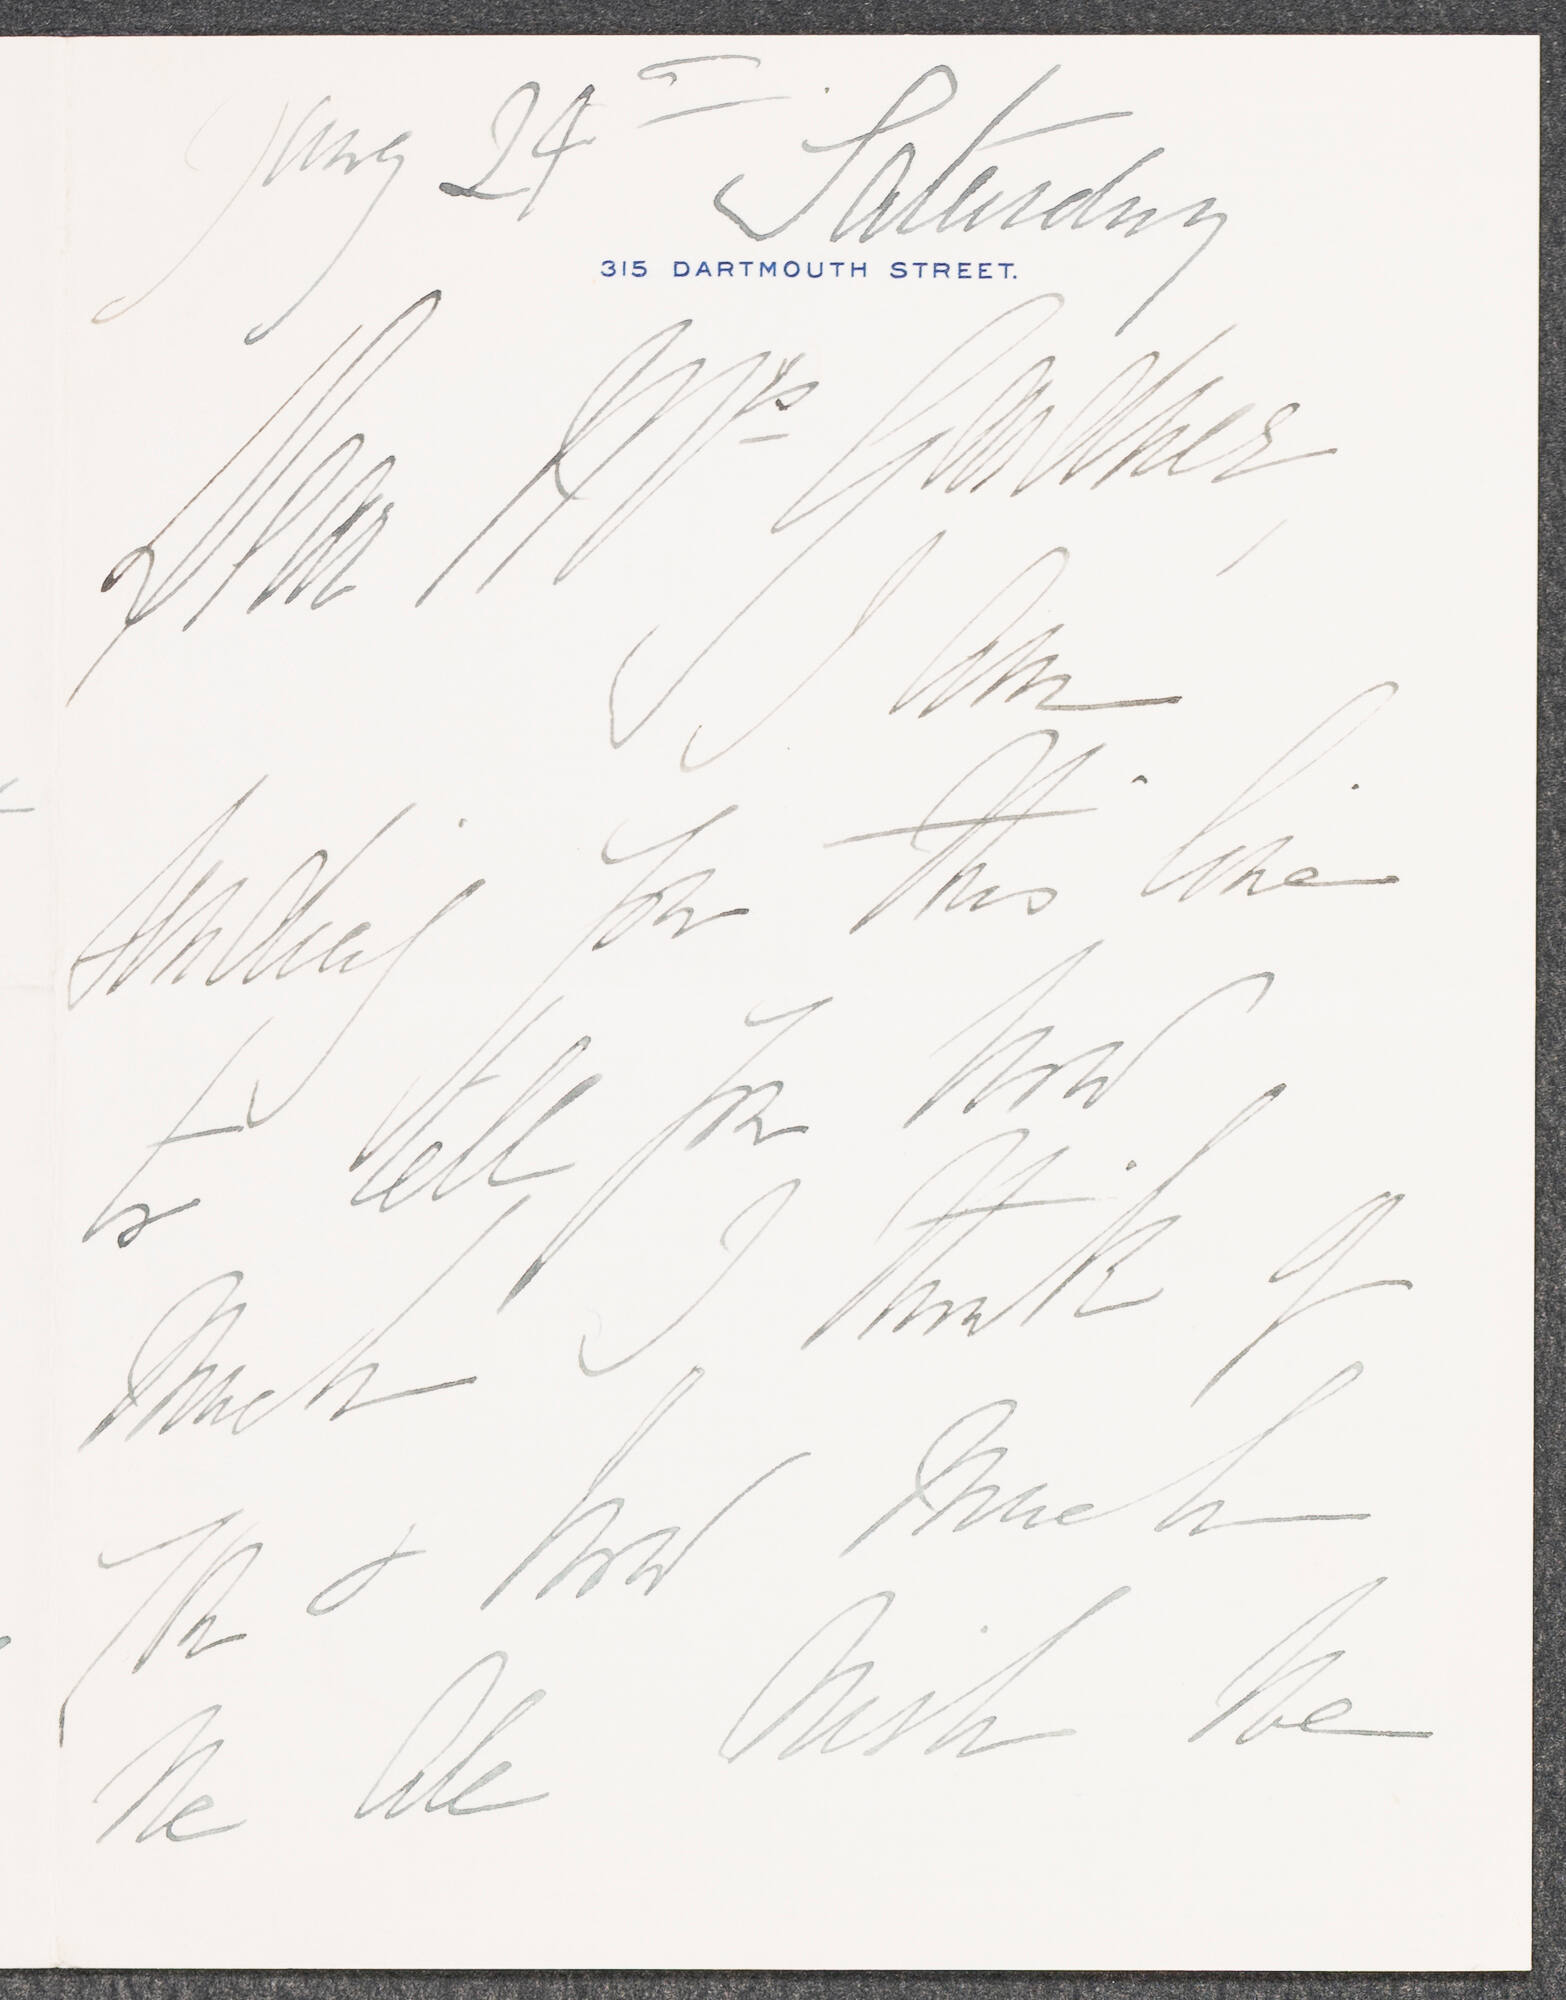 Jany 24th Saturday
315 DARTMOUTH STREET.
Dear Mrs Gardner,
I am
sending you this line
to tell you how
much I think of
you & how much
We all wish we